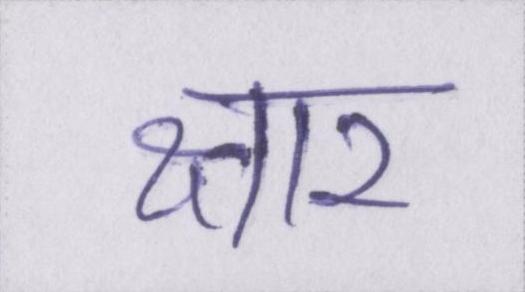 क्षार